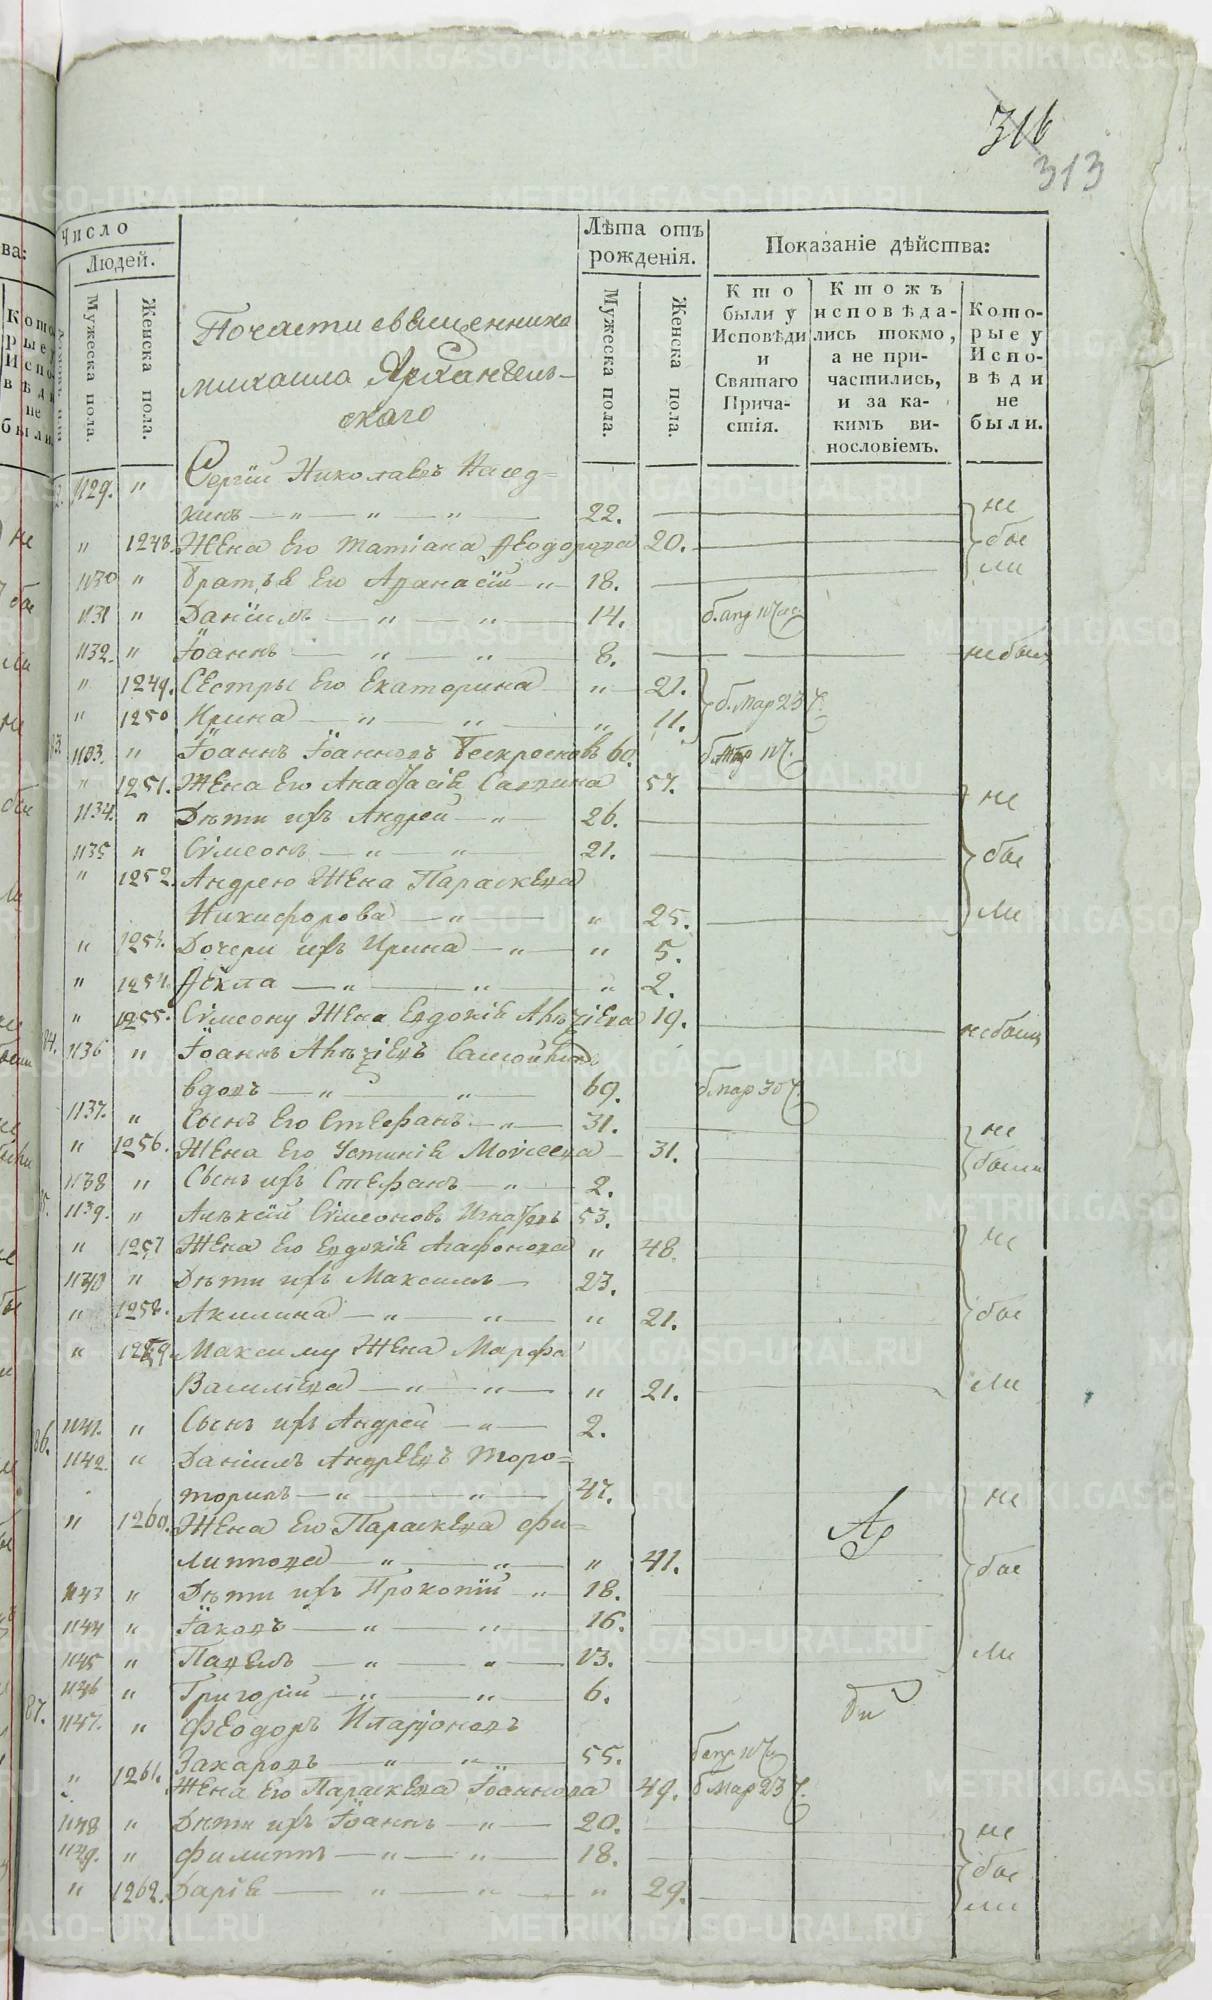 316
313
Число
Людей.
Мужеска пола.
Женска пола.
Лѣта отъ рожденія.
Мужеска пола.
Женска пола.
Показаніе дѣйства:
Кто были у Исповѣди и Святаго Прича-стія.
Ктожъ исповѣда-лись токмо, а не при-частились, и за ка-кимъ ви-нословіемъ.
Кото-рые у Испо-вѣди не были.
Почасти священника
михаила Архангель-
скаго
1129. " Сергій Николаевъ Насед=
кинъ — " — " — " — 22. не
" 1248. Жена Его татіана Ѳеодорова 20. бы
1130 " Братья Его Аѳанасій — " — 18. ли
1131 " Даніилъ — " — " — 14.
1132. " Іоаннъ — " — " — 8. небыл
" 1249. Сестры Его Екатерина " 21. б. мар 23 ч.
" 1250 Ирина — " — " — " 11.
1133. " Іоаннъ Іоанновъ 60.
" 1251. Жена Его Анастасія Саввина 57. не
1134. " Дѣти ихъ Андрей — " — 26.
1135 " Сѵмеонъ — " — " — 21. бы
" 1252. Андрею Жена Параскева
Никифорова — " — " 25. ли
" 1253. Дочери ихъ Ирина — " — " 5.
" 1254. Ѳекла — " — " — " 2.
" 1255. Сѵмеону Жена Евдокія 19. небыла
1136 " Іоаннъ
вдовъ — " — " — 69. б. мар 30 ч.
1137. " Сынъ Его Стефанъ — " — 31. не
" 1256. Жена Его Устинія Моисеева — 31. были
1138 " Сынъ ихъ Стефанъ — " — 2.
1139. " Алѣксій Сѵмеоновъ Игнатовъ 53. не
" 1257 Жена Его Евдокія Агафонова " 48.
1140 " Дѣти ихъ Максимъ — 23.
" 1258. Акилина — " — " — " 21. бы
" 1259. Максиму Жена Марфа
Василіева — " — " — " 21. ли
1141. " Сынъ ихъ Андрей — " — 2.
1142. " Даніилъ Андреевъ Торо=
торинъ — " — " — 47. не
" 1260. Жена Его Параскева Фи=
липпова — " — " — " 41. бы
1143 " Дѣти ихъ Прокопій " 18.
1144 " Іаковъ — " — " — 16.
1145 " Павелъ — " — " — 13. ли
1146 " Григорій — " — " — 6.
1147. " Феодоръ Иларіоновъ
Захаровъ — " — " — 55.
" 1261. Жена Его Параскева Іоаннова 49. б мар 23 ч.
1148 " Дѣти ихъ Іоаннъ — " — 20. не
1149. " Филиппъ — " — " — 18. бы
" 1262. Дарія — " — " — " 29. ли
METRIKI.GASO-URAL.RU